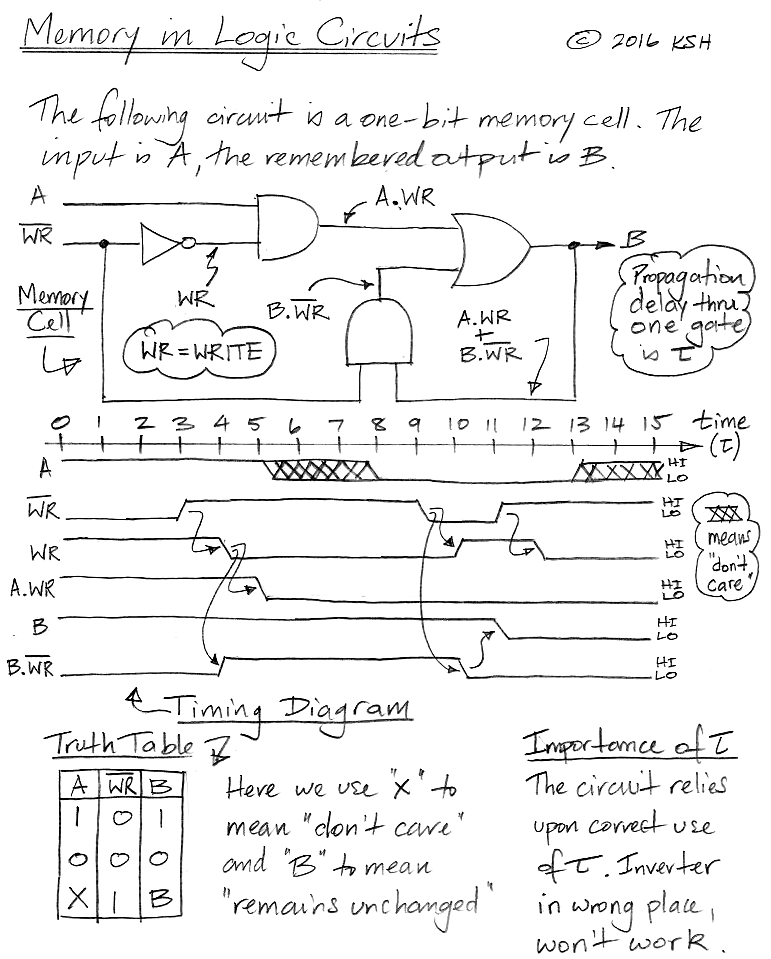 Memory in Logic Circuits
© 2016 KSH
The following circuit is a one-bit memory cell. The
input is A, the remembered output is B.
A
A.WR
W̅R̅
B
WR
B.W̅R̅
Memory
Cell
WR = WRITE
A.WR
+
B.W̅R̅
Propagation
delay thru
one gate
is τ
0 1 2 3 4 5 6 7 8 9 10 11 12 13 14 15 time
(τ)
A HI
LO
W̅R̅ HI
LO
WR HI
LO
A.WR HI
LO
B HI
LO
B.W̅R̅ HI
LO
means
"don't
care"
Timing Diagram
Truth Table
A W̅R̅ B
1 0 1
0 0 0
X 1 B
Here we use "X" to
mean "don't care"
and "B" to mean
"remains unchanged"
Importance of τ
The circuit relies
upon correct use
of τ. Inverter
in wrong place,
won't work.